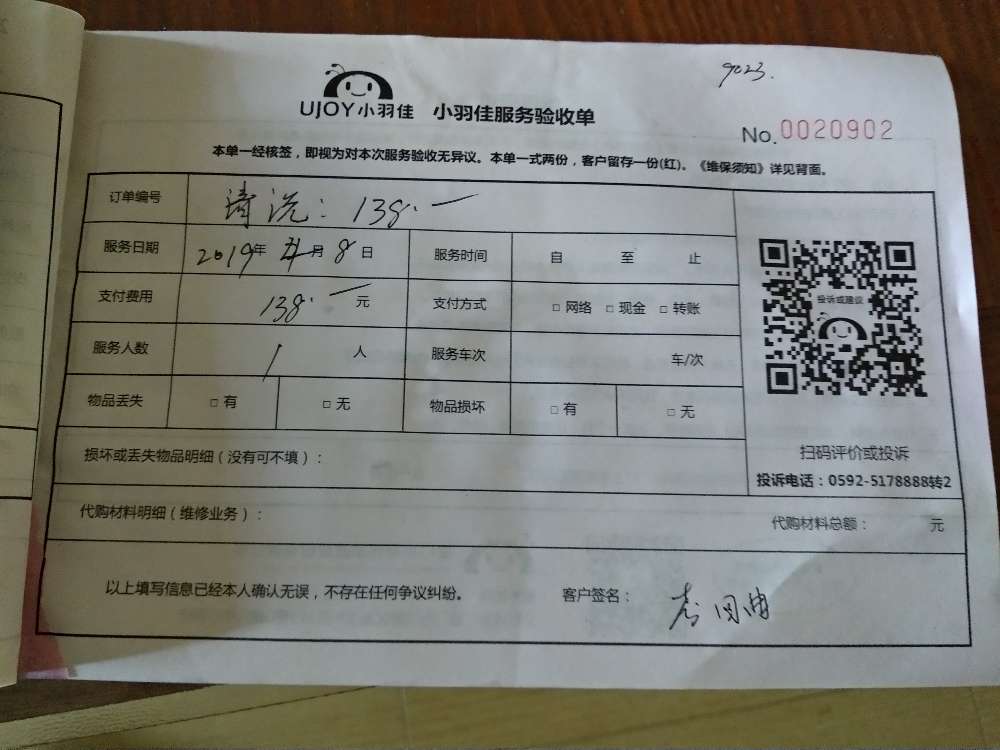 9023.
UJOY小羽佳 小羽佳服务验收单
No. 0020902
本单一经核签，即视为对本次服务验收无异议。本单一式两份，客户留存一份(红)。《维保须知》详见背面。
订单编号 清洗：138.一
服务日期 2019年 月 8 日 服务时间 自 至 止
支付费用 138.一 元 支付方式 □ 网络 □ 现金 □ 转账
投诉或建议
服务人数 1 人 服务车次 车/次
物品丢失 □ 有 □ 无 物品损坏 □ 有 □ 无
损坏或丢失物品明细（没有可不填）：
扫码评价或投诉
投诉电话：0592-5178888转2
代购材料明细（维修业务）： 代购材料总额： 元
以上填写信息已经本人确认无误，不存在任何争议纠纷。 客户签名：